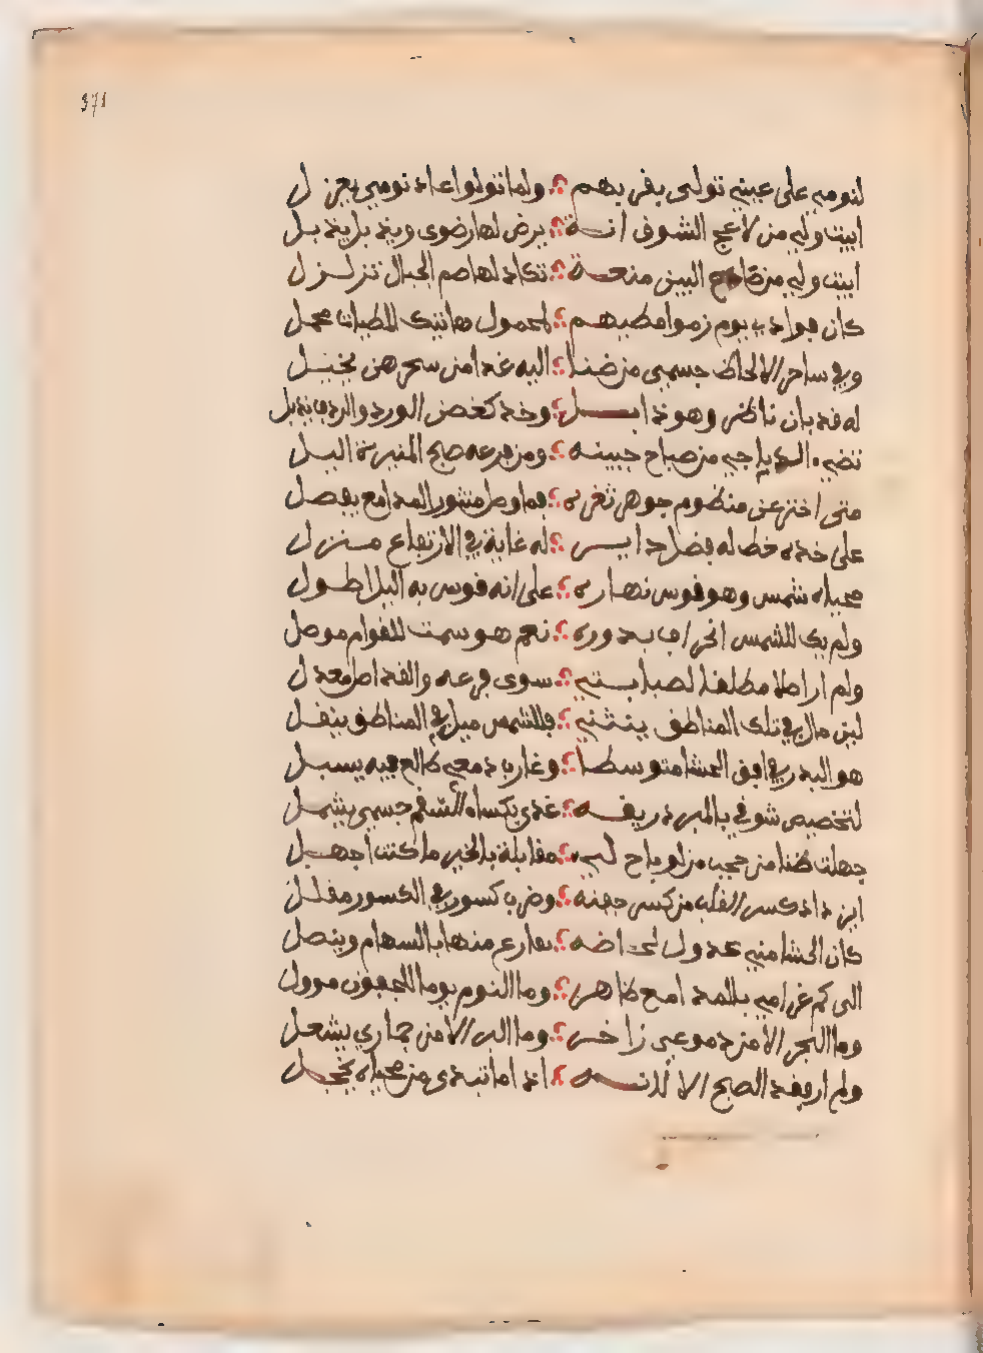 371
لنومي على عيني تولى بفربهم ؞ ولما تولوا عاد نومي يعزل
ابيت ولي من لاعج الشوق انة ؞ يرض لها رضوى ويذبل يذبل
ابيت ولي من البين منعة ؞ تكاد لها صم الجبال تزلزل
كان فوادي يوم زموا مطيهم ؞ لمحمول هاتيك المطيات محمل
وبي ساحر الالحاظ جسمي من ضنا ؞ اليه غدا من سحرهن يخيل
له قد بان ناظر وهو ذابل ؞ وخد كغض الورد والورد يذبل
تضيء الدياجي من صباح جبينه ؞ ومن فرعه صبح المنيرة اليل
متى اختر عن منظوم جوهر ثغره ؞ فما وصل منثور المدامع يفصل
على خده خط له فضل داير ؞ له غاية في الارتفاع منزل
محياه شمس وهو قوس نهاره ؞ على انه قوس به اليل اطول
ولم يك للشمس انحراف بدوره ؞ نعم هو سمت للقوام موصل
ولم ار اصلا مطلقا لصبابتي ؞ سوى فرعه والقد اصل معدل
لين مال في تلك المناطق ينثني ؞ فللشمس ميل في المناطق ينقل
هو البدر في افق الحشا متوسطا ؞ وغارب دمعي طالع فيه يسبل
لتخصيص شوقي بالمبرد ريقه ؞ غدى بكساه السقم جسمي يشمل
جهلت ظنا من حجب من لو باح لي ؞ مقابلة بالخير ما كنت اجهل
اين داد كسر القلب من كسر جفنه ؞ وضرب كسور في الكسور مقلل
كان الحشا مني عدول لحاضه ؞ يقارع منها بالسهام وينصل
الى كم غرامي بالمدامع ظاهر ؞ وما النوم يوما للجفون موول
وما البحر الا من دموعي زاخر ؞ وما البر الا من جماري يشعل
ولم ار فقد الصبح الا لانه ؞ اذا ما تبدى من محياه يخجل